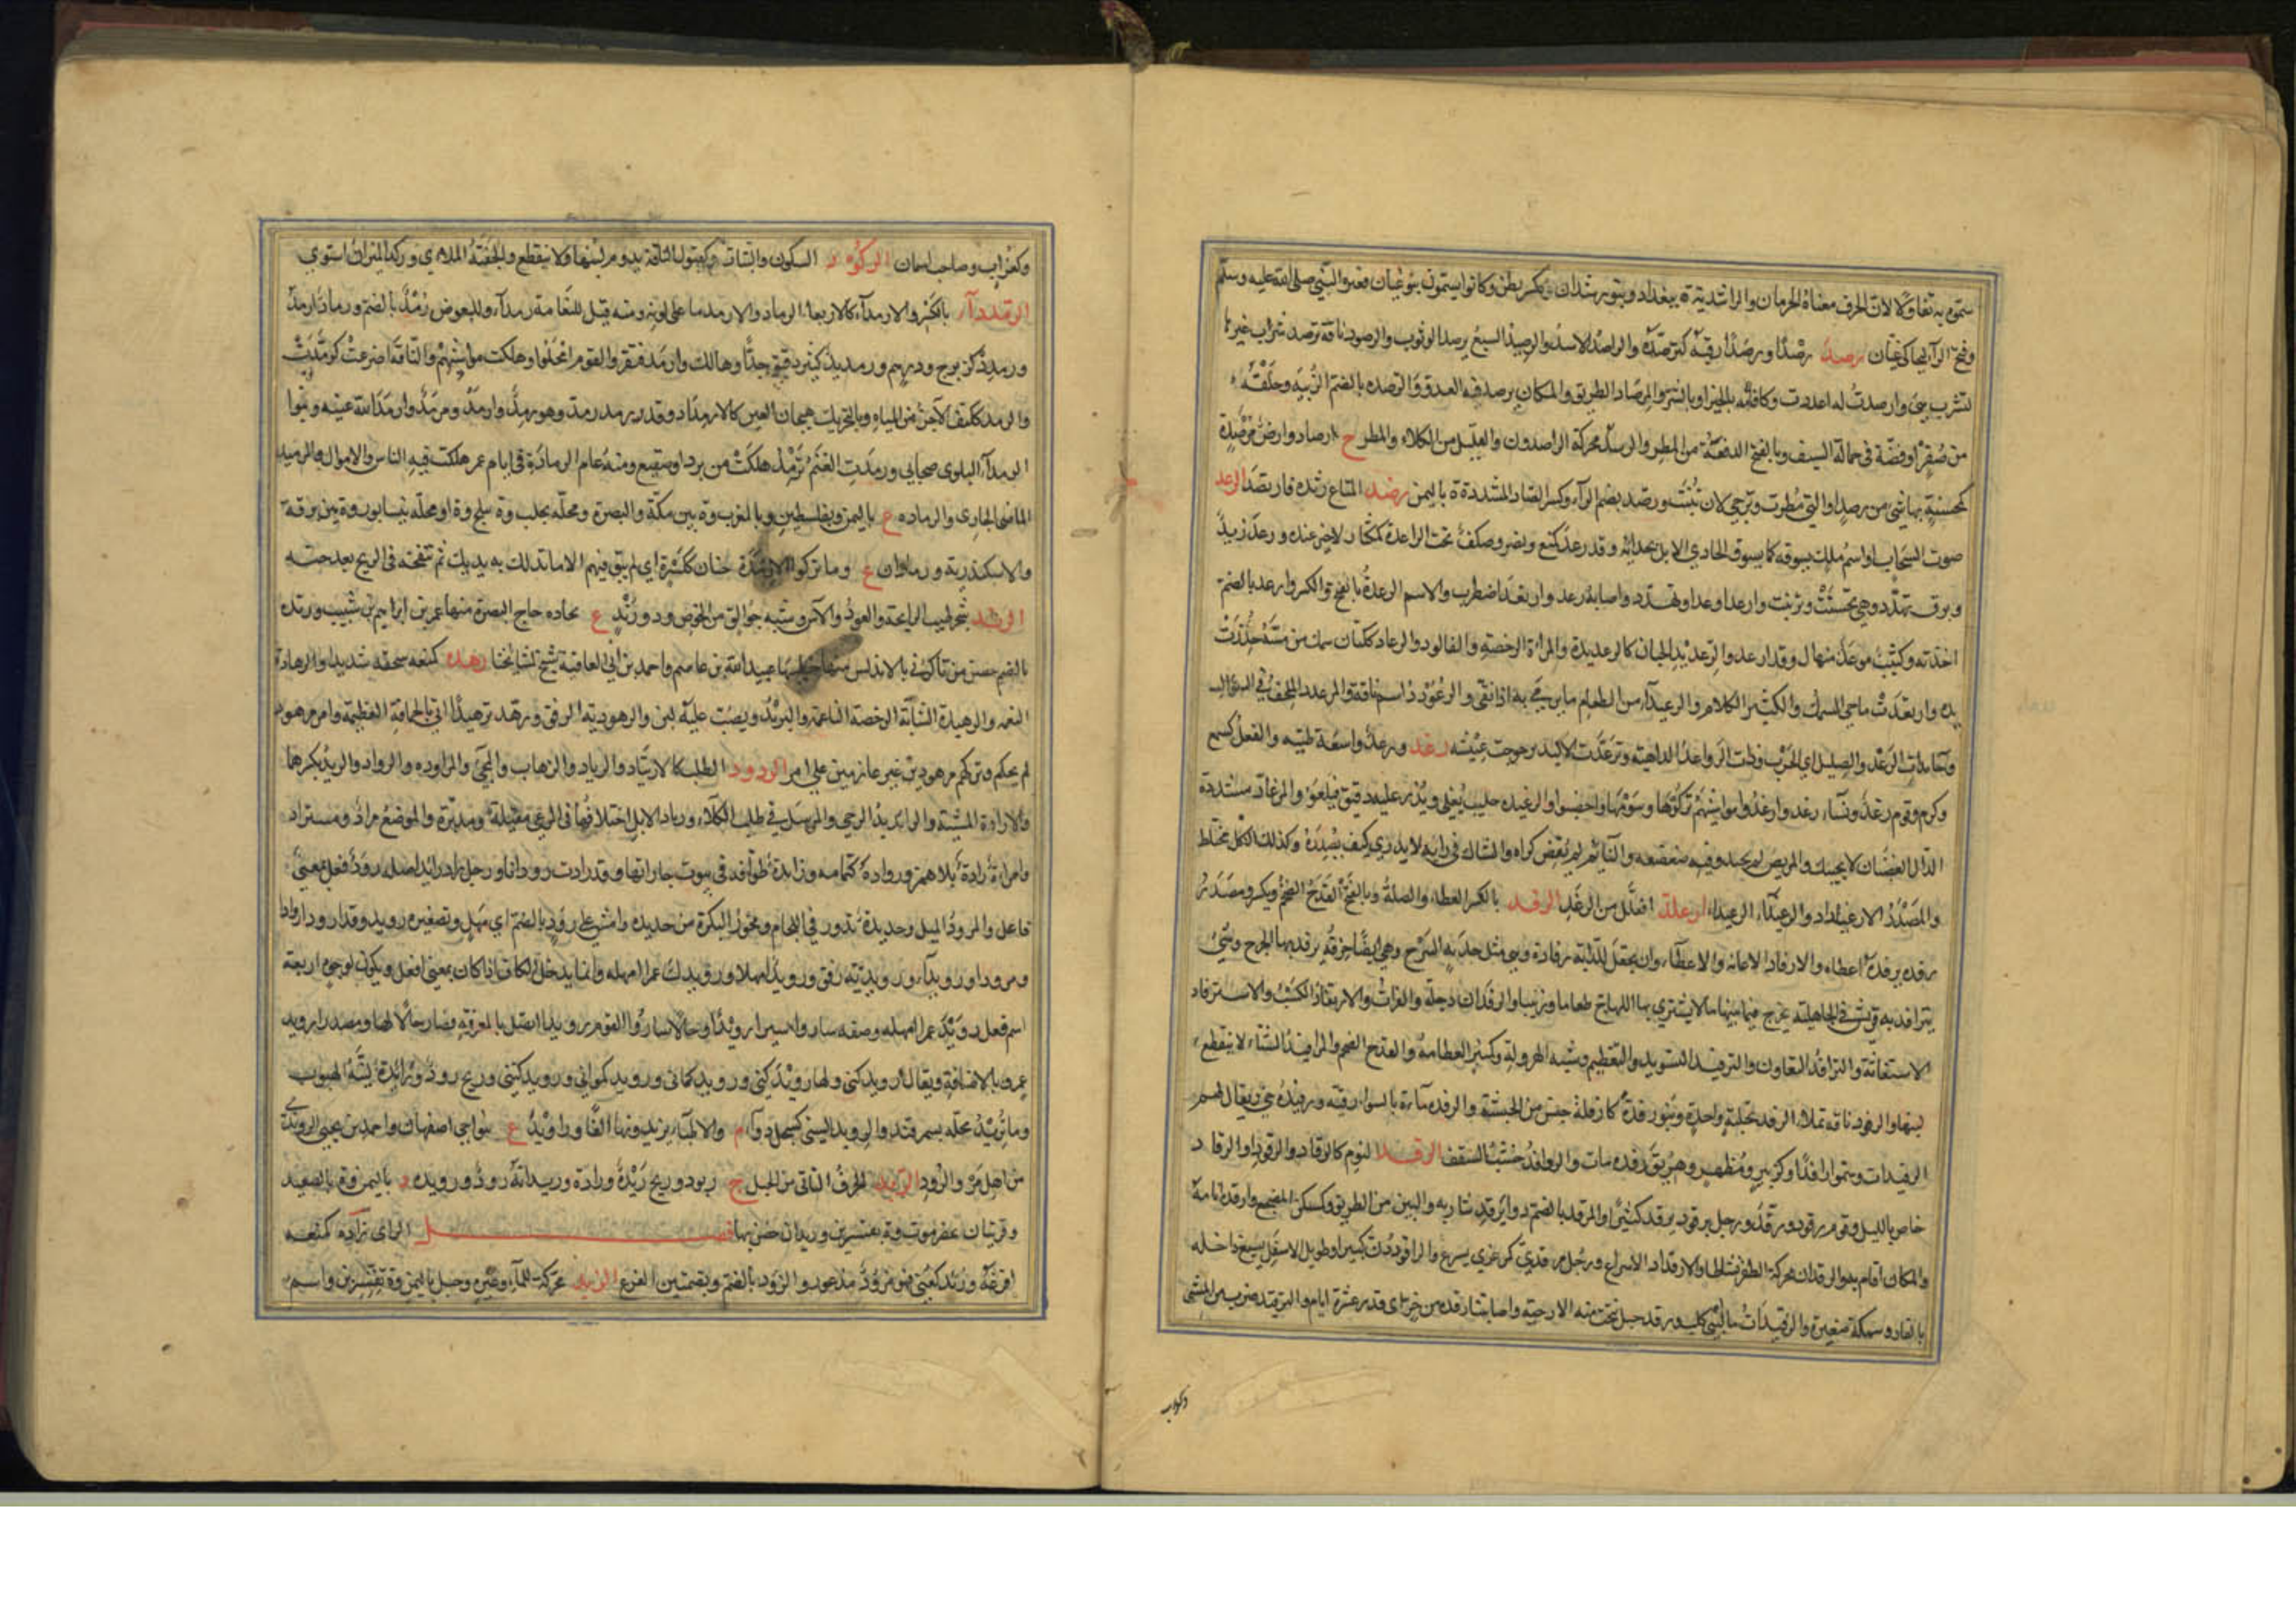 سموه به تفاؤلا لان الحرف معناه الحرمان والراشدية ة ببغداد وبنو رشدان ويكسر بطن وكانوا يسمون بنو غيان فغيره النبي صلى الله عليه وسلم
وفتح الراء ليحاكي غيان رصده رصدا ورصدا رقبه كترصده والراصد الاسد والرصيد السبع يرصد الوثوب والرصود ناقة ترصد شراب غيرها
لتشرب هي وارصدت له اعددت وكافأته بالخير او بالشر والمرصاد الطريق والمكان يرصد فيه العدو والرصده بالضم الزبية وحلقة
من صفر او فضة في حمالة السيف وبالفتح الدفعة من المطر والرصد محركة الراصدون والقليل من الكلاء والمطر ج ارصاد وارض مرصدة
كمحسنة بها شئ من رصد او التي مطرت وترجى لان تنبت ورصد بضم الراء وكسر الصاد المشددة ة باليمن رضد المتاع رثده فارتضد الرعد
صوت السحاب او اسم ملك يسوقه كما يسوق الحادي الابل بحدائه وقد رعد كمنع ونصر وصلف تحت الراعدة لمكثار لا خير عنده ورعد زيد
وبرق تهدد وهي تحسنت وتزينت وارعد اوعد او تهدد واصابه رعد وارتعد اضطرب والاسم الرعدة بالفتح والكسر وارعد بالضم
اخذته وكثيب مرعد منهال وقد ارعد والرعديد الجبان كالرعديدة والمراة الرخصة والفالوذ والرعاد ككتان سمك من مسه خدرت
يده وارتعدت ما حي السمك والكثير الكلام والرعيداء من الطعام ما يرمى به اذا نقي والرعودد اسم ناقة والمرعدد الملحف في السؤال
وجاء بذات الرعد والصليل اي الحرب وذات الرواعد الداهية وترعددت الالية ترجرجت عيشه رغد ورغد واسعة طيبة والفعل كسمع
وكرم وقوم رغد ونساء رغد وارغدوا مواشيهم تركوها وسومها واخصبوا والرغيدة حليب يغلى ويذر عليه دقيق فيلعق والمرغاد مشددة
الدال الغضبان لا يجيبك والمريض لم يجهد وفيه ضعضعة والنائم لم يقض كراه والشاك في رايه لا يدري كيف يصدره وكذلك الكل مختلط
والمصدر الارغيداد والرغيداء الرعيداء ارعلد افعلل من الرغد الرفد بالكسر العطاء والصلة وبالفتح القدح الضخم ويكسر ومصدر
رفده يرفده اعطاه والارفاد الاعانة والاعطاء وان يجعل للدابة رفادة وهي مثل جدية السرج وهي ايضا خرقة يرفد بها الجرح وشئ
يترافد به قريش في الجاهلية تخرج فيما بينها ما لا يشتري بها للحاج طعاما وزبيبا والرافدان دجلة والفرات والارتفاد الكسب والاسترفاد
الاستعانة والترافد التعاون والترفيد التسويد والتعظيم وشبه الهرولة وكمنبر العظامة والقدح الضخم والمرافيد الشاء لا ينقطع
لبنها والرفود ناقة تملاء الرفد بحلبة واحدة وبنو رفدة كارفلة جنس من الحبشة والرفدة ماءة بالسوارقية ورفيدة حي ويقال لهم
الرفيدات وسموا رافدا وكزبير ومظهر وهريق رفده مات والروافد خشب السقف الرقد النوم كالرقاد والرقود او الرقاد
خاص بالليل وقوم رقود ورقد ورجل يرقود يرقد كثيرا والمرقد بالضم دواء يرقد شاربه والبين من الطريق وكمسكن المضجع وارقده انامه
والمكان اقام به والرقدان محركة الطفر نشاطا والارقداد الاسراع ورجل مرقدى كمرعزى يسرع والراقود دن كبير او طويل الاسفل يسيع داخله
بالقار وسمكة صغيرة والرقيدات ماء لبني كلب ورقد جبل تنحت منه الارحية واصابتنا رقدة من حر اي قدر عشرة ايام والترقيد ضرب من المشي
وكغراب
وكغراب وصاحب اسمان الركود السكون والثبات وكصبور الناقة يدوم لبنها ولا ينقطع والجفنة الملاءى وركد الميزان استوى
الرمدداء بالكسر والارمداء كالاربعاء الرماد والارمد ما على لونه ومنه قيل للنعامة رمداء وللبعوض رمد بالضم ورماد ارمد
ورمدد كزبرج ودرهم ورمديد كثير دقيق جدا وهالك وارمد افتقر والقوم امحلوا وهلكت مواشيهم والناقة اضرعت كرمدت
والرمد ككتف الآجن من المياه وبالتحريك هيجان العين كالارمداد وقد رمد يرمد رمد وهو رمد وارمد ومرمد وارمد الله عينه وبنوا
الرمداء البلوى صحابي ورمدت الغنم ترمد هلكت من برد او صقيع ومنه عام الرمادة في ايام عمر هلكت فيه الناس والاموال والرميد
الماضي الجاري والرمادة ع باليمن وبفلسطين وبالمغرب وة بين مكة والبصرة ومحلة بحلب وة ببلخ وة او محلة بنيسابور وة بين برقة
والاسكندرية ورمادان ع وما تركوا الا رمدة حتان ككسرة اي لم يبق فيهم الا ما تدلك به يديك ثم تنفخه في الريح بعد حته
الرند شجر طيب الرائحة والعود والآس وشبه جوالق من الخوص ودورند ع بحذاء حاج البصرة منها عمر بن ابراهيم بن شبيب ورندة
بالضم حصن من تاكرنى بالاندلس منها خطيبها عبيد الله بن عاصم واحمد بن ابي العافية شيخ لمشايخنا رهده كمنعه سحقه شديدا والرهادة
النعمة والرهيدة الشابة الرخصة الناعمة والبر يدق ويصب عليه لبن والرهودية الرفق ورهد ترهيدا اتى بالحماقة العظيمة وامر مرهود
لم يحكم وتركتهم مرهودين غير عازمين على امر الرود الطلب كالارتياد والرياد والذهاب والمجئ والمراودة والرواد والريد بكسرهما
والارادة المشية والرائد يد الرحى والمرسل في طلب الكلاء ورياد الابل اختلافها في الرعى مقبلة ومدبرة والموضع مراد ومستراد
وامراة رادة بلا همز وروادة كثمامة ورائدة طوافة في بيوت جاراتها وقد رادت رودانا ورجل راد رائد اصله رود فعل بمعنى
فاعل والمرود الميل وحديدة تدور في اللجام ومحور البكرة من حديد وامش على رود بالضم اي مهل وتصغيره رويد وقد ارود اروادا
ومرودا ورويدا ورويداء ورويدية رفق ورويدا مهلا ورويدك عمرا امهله وانما يدخله الكاف اذا كان بمعنى افعل ويكون لوجوه اربعة
اسم فعل رويد عمرا امهله وصفة ساروا سيرا رويدا وحالا ساروا القوم رويدا اتصل بالمعرفة فصار حالا لها ومصدرا رويد
عمرو بالاضافة ويقال رويدكني ولها رويدكني ورويدكماني ورويدكموني ورويدكنني وريح رود ورائدة لينة الهبوب
وماتريد محلة بسمرقند والرويد السنى كسجل دواء م والالحاء يزيد ونها الفا وراويد ع بنواحي اصفهان واحمد بن يحيى الروندي
من اهل مرو الرود الريد الحرف الناتئ من الجبل ج ريود وريح ريدة ورادة وريدانة رود ورويدة د باليمن وة بالصعيد
وقريتان بحضرموت وة بقنسرين وريدان حصن بها فصل الزاي زاده كمنعه
افزعه وزئد كعني فهو مزؤد مذعور والزؤد بالضم وبضمتين الفزع الزبد محركة للماء وغيره وجبل باليمن وة بقنسرين واسم